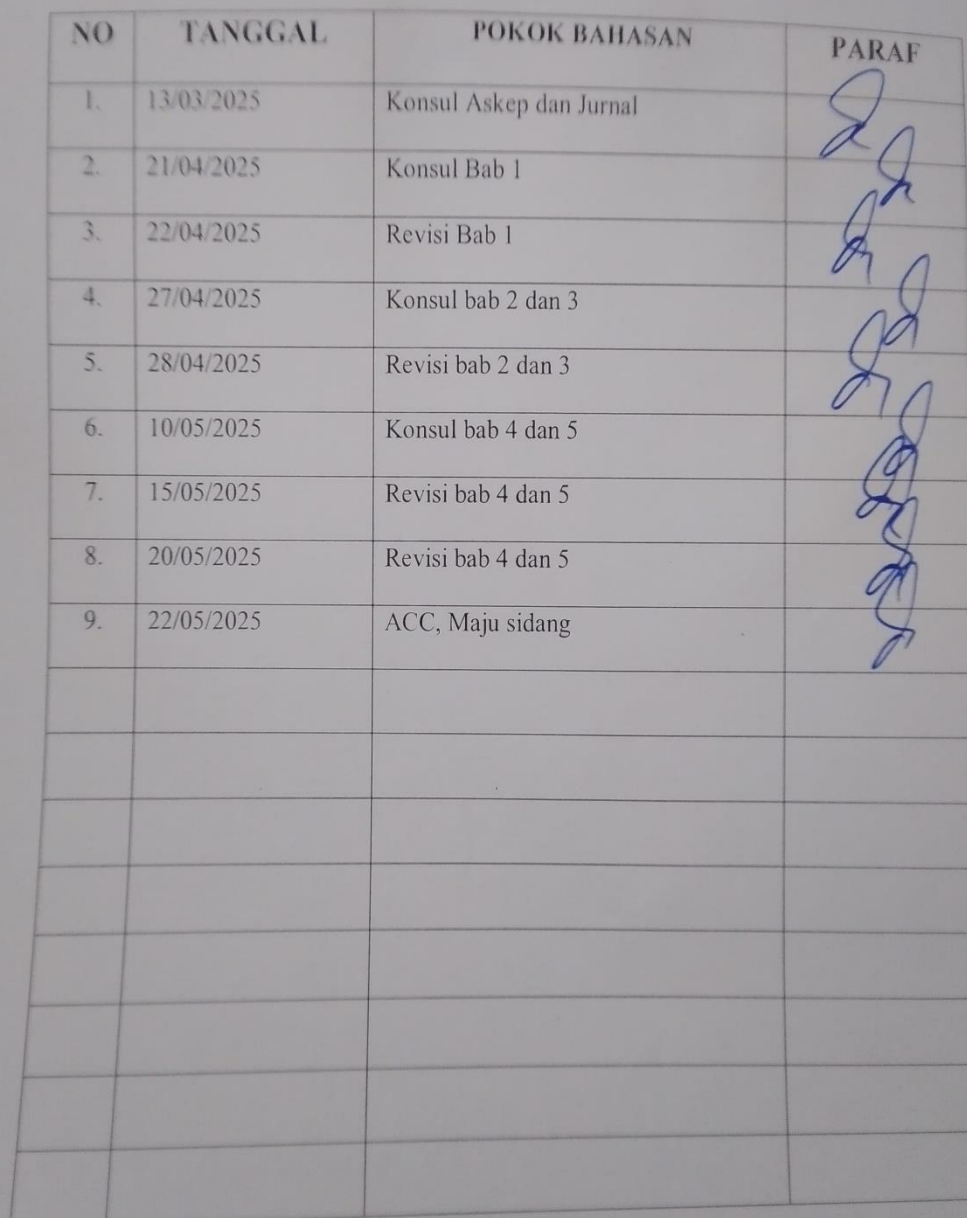 NO TANGGAL POKOK BAHASAN PARAF
1. 13/03/2025 Konsul Askep dan Jurnal
2. 21/04/2025 Konsul Bab 1
3. 22/04/2025 Revisi Bab 1
4. 27/04/2025 Konsul bab 2 dan 3
5. 28/04/2025 Revisi bab 2 dan 3
6. 10/05/2025 Konsul bab 4 dan 5
7. 15/05/2025 Revisi bab 4 dan 5
8. 20/05/2025 Revisi bab 4 dan 5
9. 22/05/2025 ACC, Maju sidang